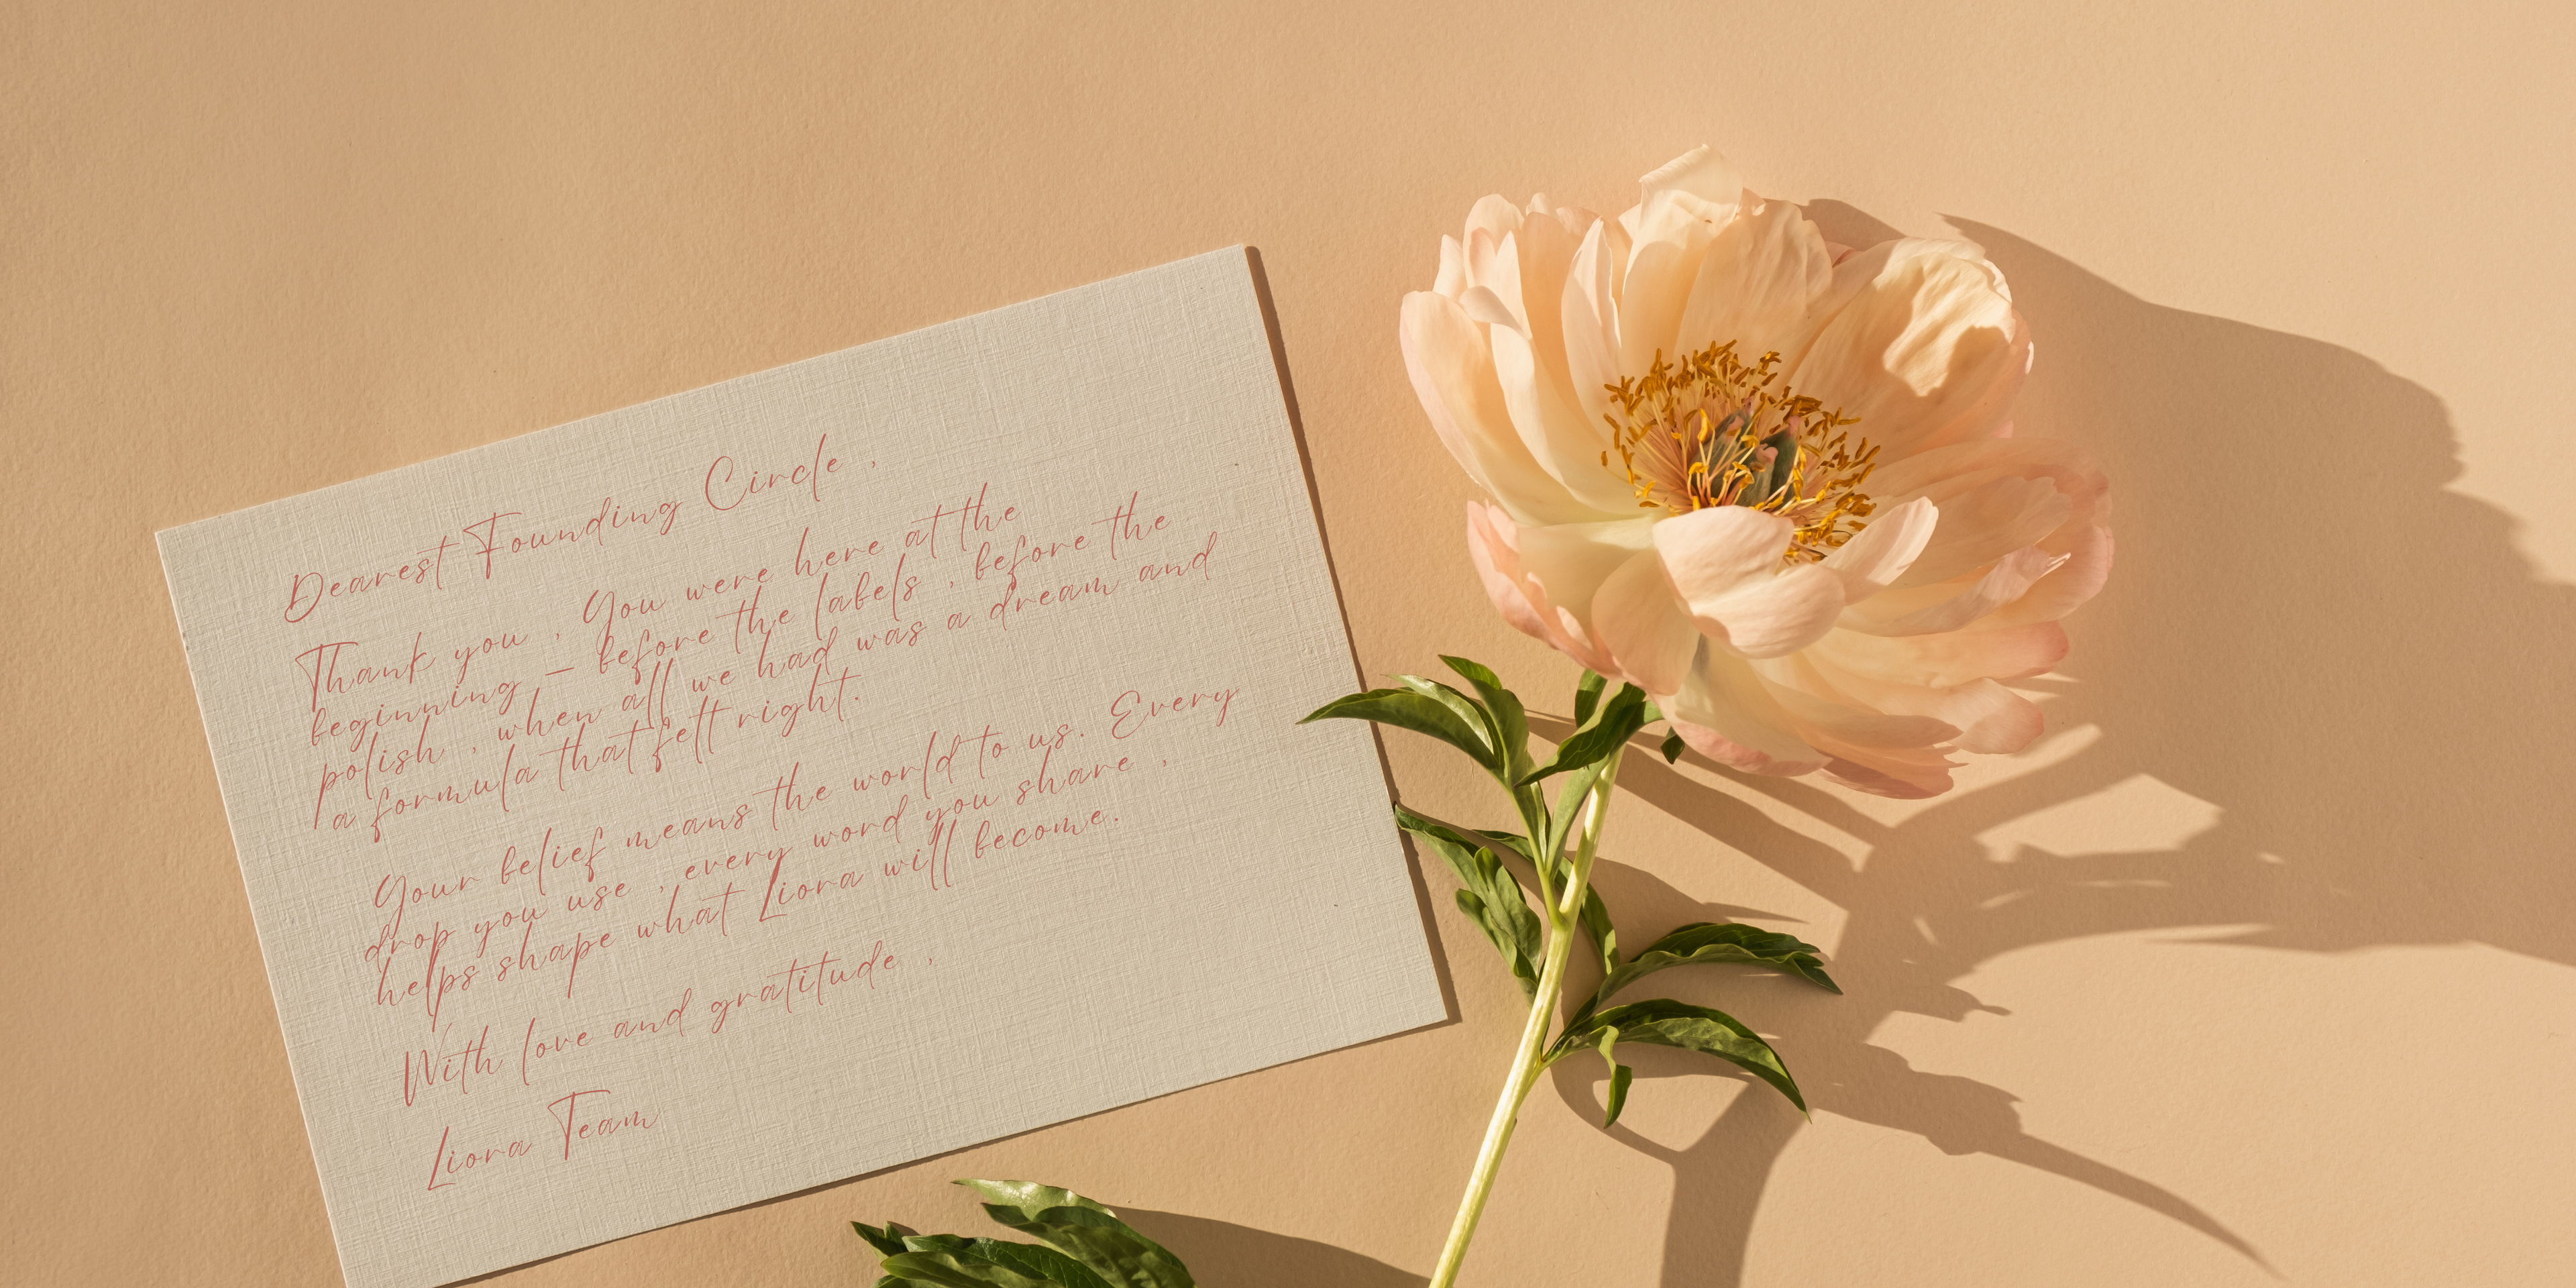 Dearest Founding Circle ,
Thank you , You were here at the
beginning – before the labels , before the
polish , when all we had was a dream and
a formula that felt right.
Your belief means the world to us. Every
drop you use , every word you share ,
helps shape what Liora will become.
With love and gratitude ,
Liora Team